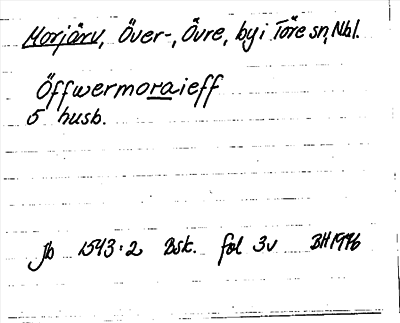 Morjärv, Över-, Övre, by i Töre sn, Nbl.
Öffwermoraieff
5 husb.
Jb 1543:2 Bsk. fol 3v BH 1996